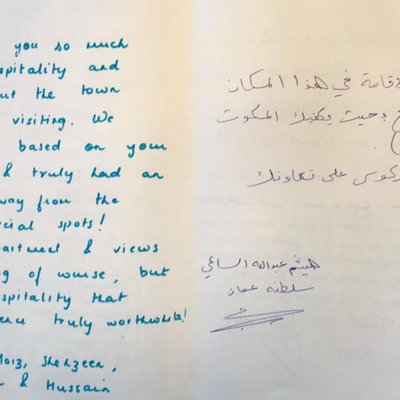 you so much
spitality and
out the town
visiting. We
based on your
& truly had an
way from the
cial spots!
partment & views
ng of course, but
spitality that
ence truly worthwhile!
Moiz, Sherzeen,
& Hussain
الاقامة في هذا المكان
بحيث يمكنك المكوت
على تعاونك
هيثم عبدالله الساعي
سلطنه عمان